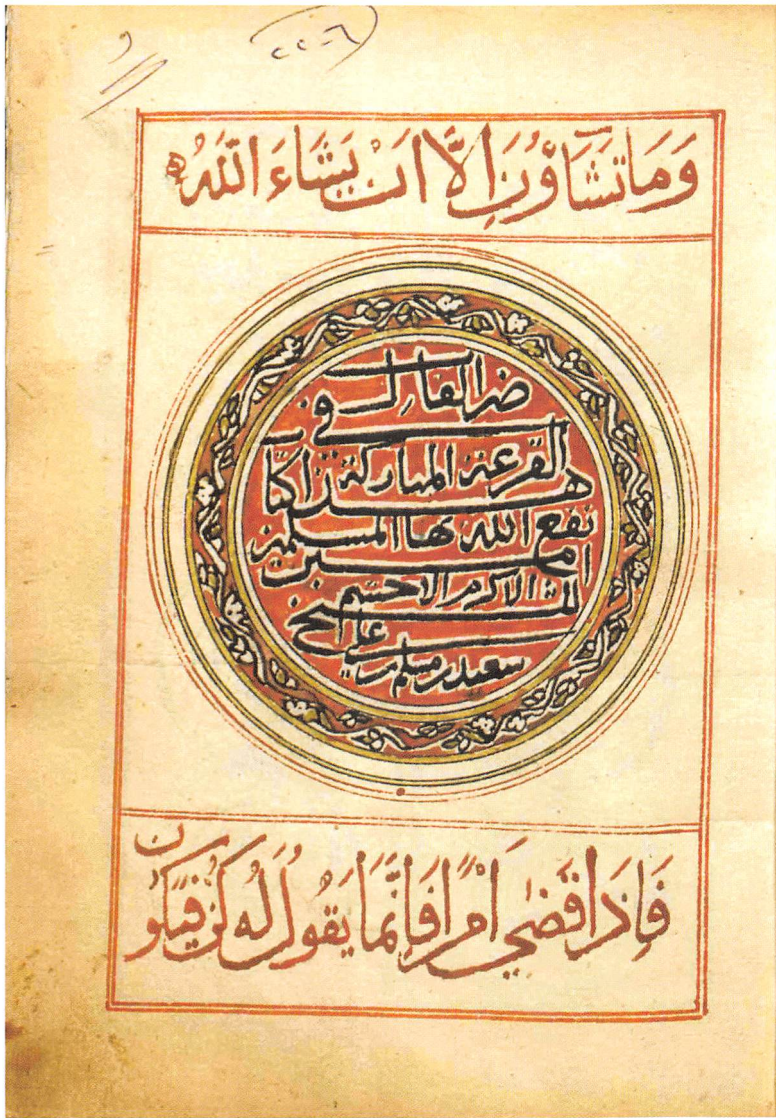 وَمَا تَشَاؤُنَ اِلَّا اَنْ يَشَاءَ اللّٰهُ
ضرب الفال في
القرعة المباركة
هذا كتاب
نفع الله بها المسلمين
امين
الاكرم الاحشم
سعيد بن مسلم بن علي
فَاِذَا قَضٰى اَمْرًا فَاِنَّمَا يَقُولُ لَهُ كُنْ فَيَكُون